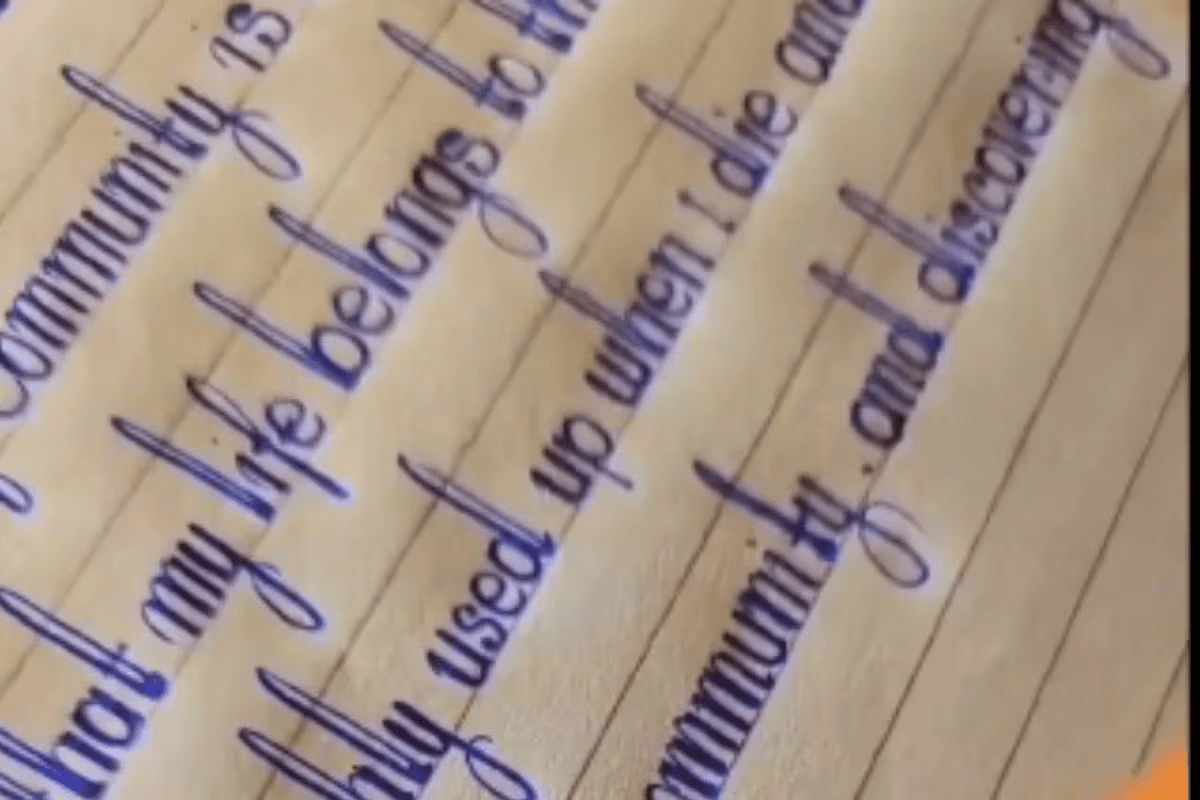 community is
that my life belongs to
used up when I die and
community. and discovering